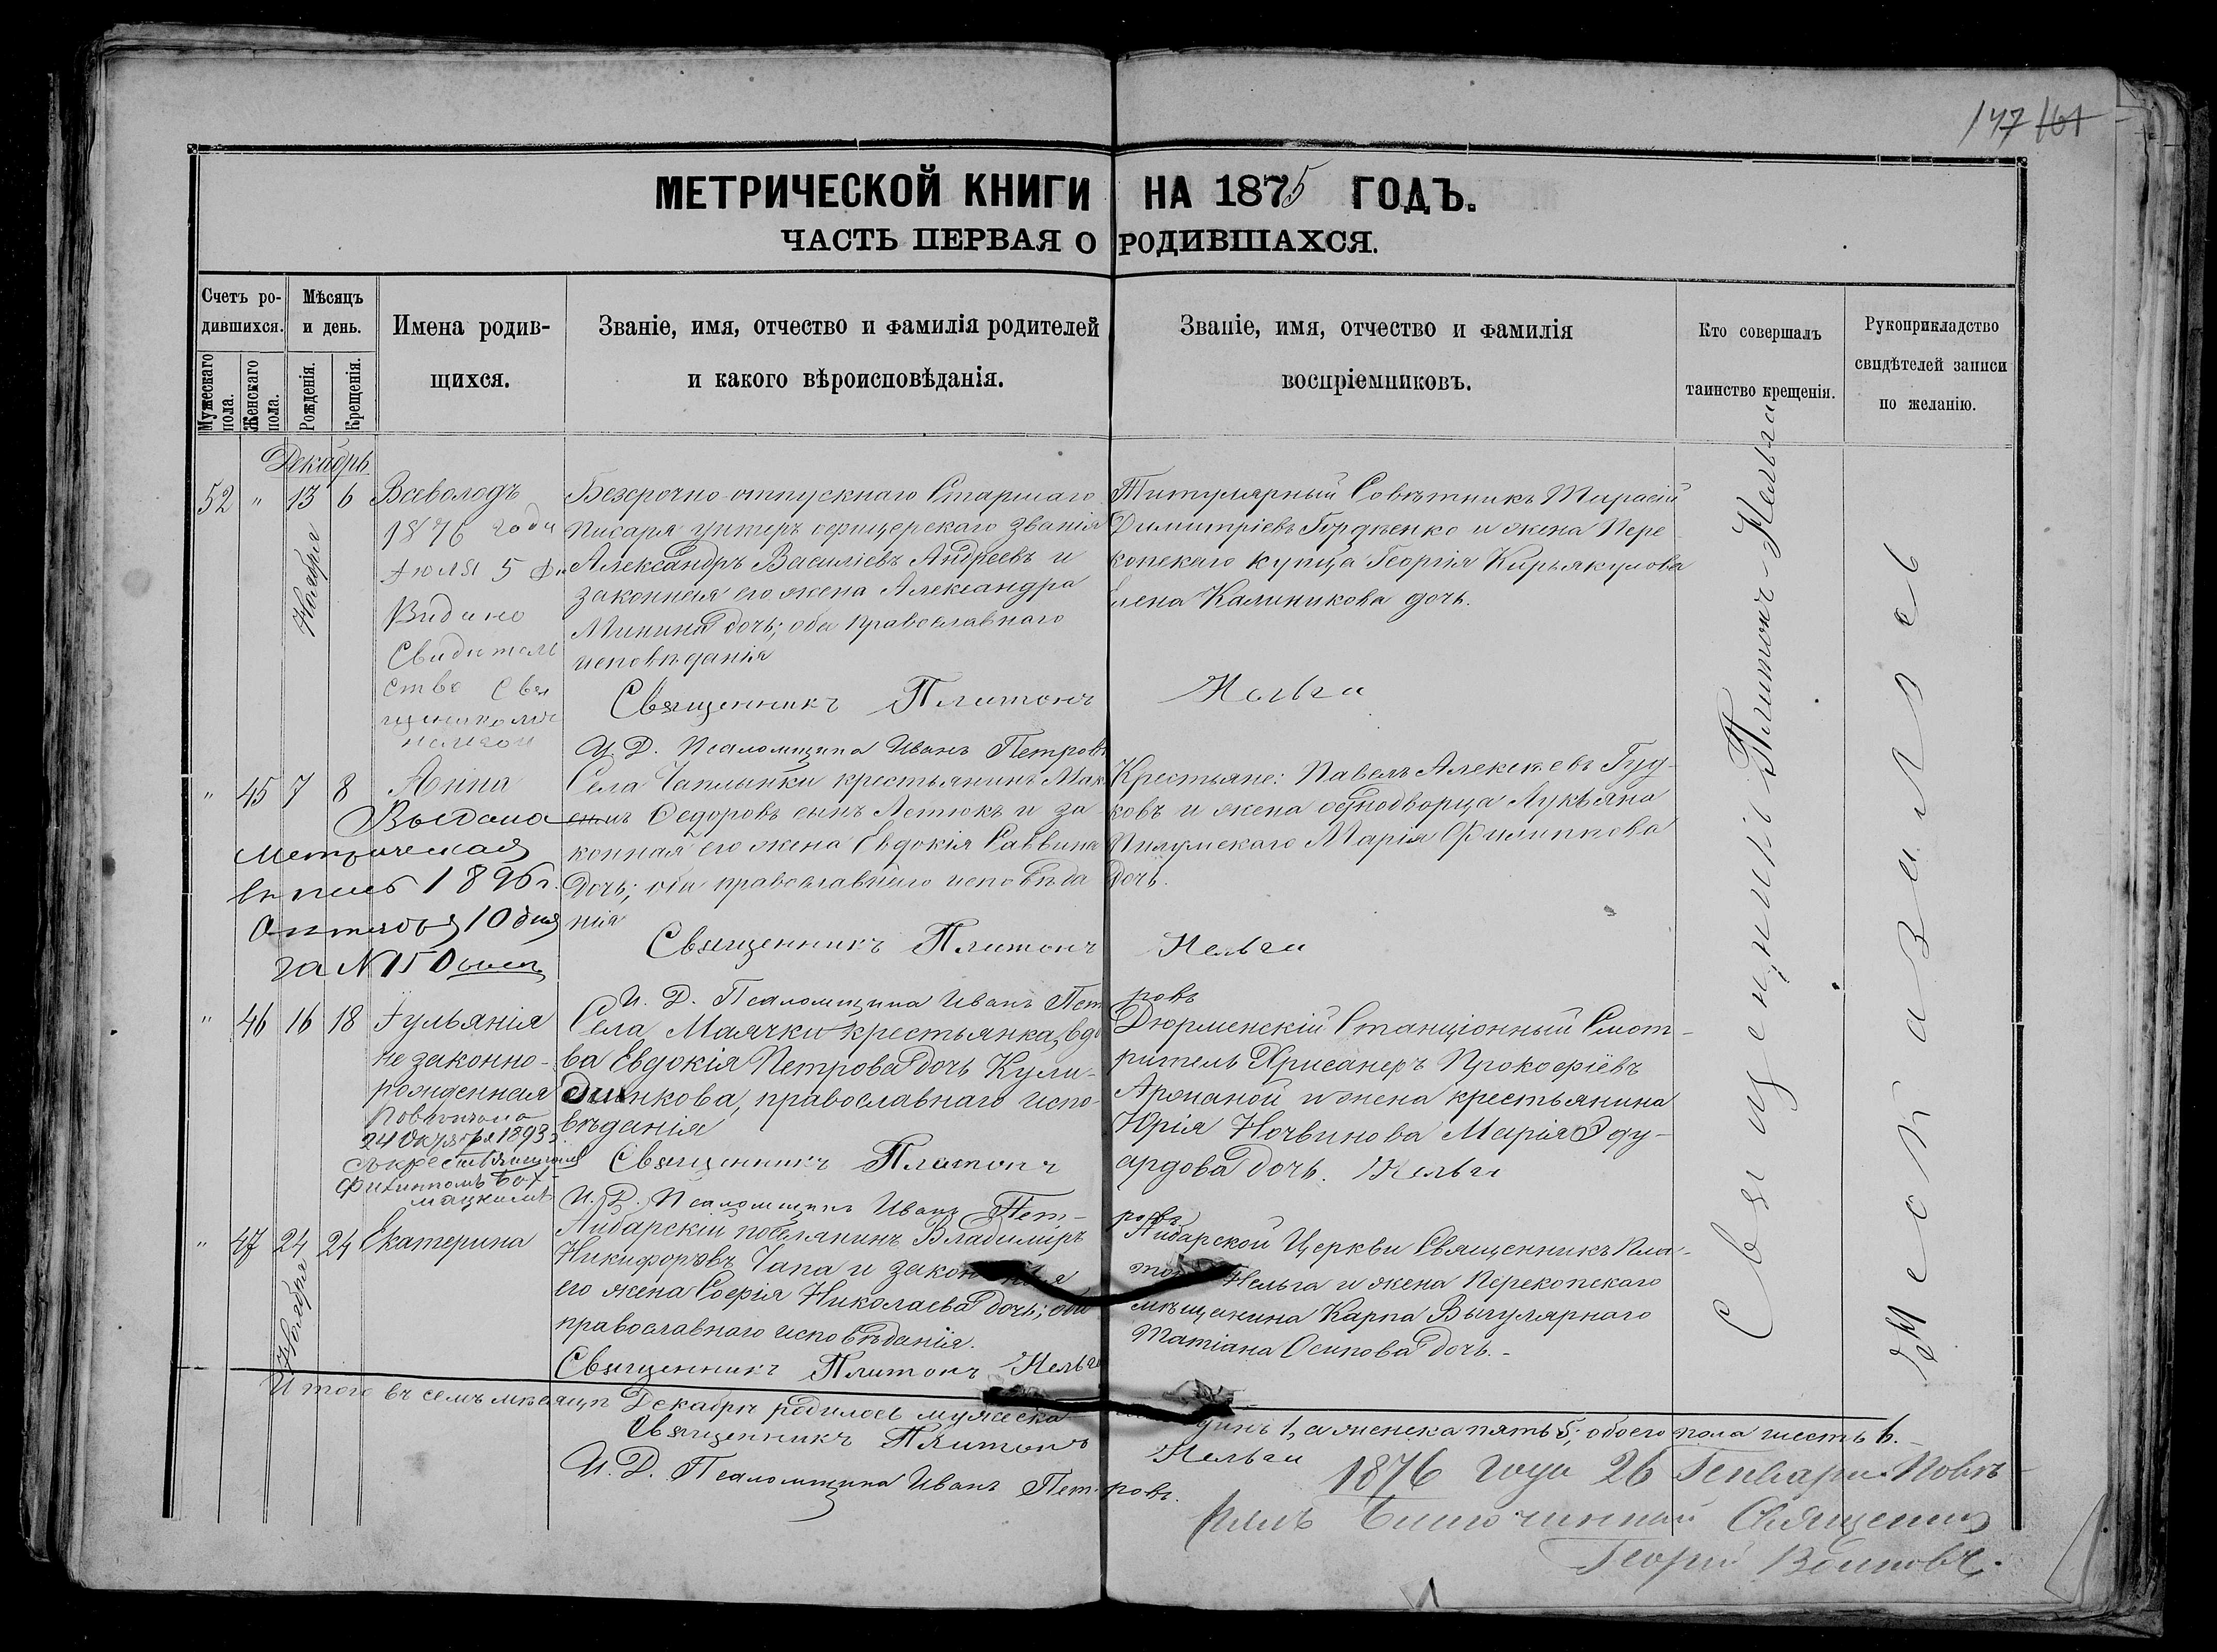 147 161
МЕТРИЧЕСКОЙ КНИГИ НА 1875 ГОДЪ.
ЧАСТЬ ПЕРВАЯ О РОДИВШАХСЯ.
Счетъ ро-
дившихся.
Мужескаго пола.
Женскаго пола.
Мѣсяцъ
и день.
Рожденія.
Крещенія.
Имена родив-
щихся.
Званіе, имя, отчество и фамилія родителей
и какого вѣроисповѣданія.
Званіе, имя, отчество и фамилія
воспріемниковъ.
Кто совершалъ
таинство крещенія.
Рукоприкладство
свидѣтелей записи
по желанію.
Декабрь
52 " 13 6
Ноября
Всеволодъ
1876 года
Июля 5 дн
Видано
Свидитель
ство Свя
Безсрочно-отпускнаго Старшаго
писаря унтеръ офицерскаго званія
Александръ Василіевъ Андреевъ и
законная его жена Александра
Минина дочь; оба православнаго
исповѣданія
Титулярный Совѣтникъ Тарасій
Димитріевъ Гордѣенко и жена Пере
копскаго купца Георгія Кирьякулова
Елена Калиникова дочь.
Священникъ Платонъ Нельга
И. Д. Псаломщика Иванъ Петровъ
" 45 7 8
Анна
Выдана
метрическая
выпись 1896 г.
Октября 10 дня
за № 150
Села Чаплынки крестьянинъ Мак
симъ Ѳедоровъ сынъ Летюкъ и за
конная его жена Евдокія Саввина
дочь; оба православнаго исповѣда
нія
Крестьяне: Павелъ Алексѣевъ Гуд-
ковъ и жена однодворца Лукьяна
Пилумскаго Марія Филиппова
дочь.
Священникъ Платонъ Нельга
И. Д. Псаломщика Иванъ Петровъ
" 46 16 18
Іульянія
незаконно-
рожденная
Повѣнчана
24 Октября 1893 г.
съ крестьяниномъ
Филиппомъ Бот-
мацкимъ
Села Маячки крестьянка, вдо
ва Евдокія Петрова дочь Кули-
динкова, православнаго испо-
вѣданія
Дюрменскій Станціонный Смот-
ритель Хрисанфъ Прокофіевъ
и жена крестьянина
Юрія Ночвинова Марія Эду-
ардова дочь.
Священникъ Платонъ Нельга
И. Д. Псаломщика Иванъ Петровъ
" 47 24 24
Ноября
Екатерина
Аибарскій поселянинъ Владиміръ
Никифоровъ Чапа и законная
его жена Софія Николаева дочь; оба
православнаго исповѣданія.
Аибарской Церкви Священникъ Пла-
тонъ Нельга и жена Перекопскаго
мѣщанина Карпа Вычулярнаго
Татіана Осипова дочь.-
Священникъ Платонъ Нельга
Священникъ Платонъ Нельга
Итого въ семъ мѣсяцѣ Декабрѣ родилось мужеска одинъ 1, а женска пять 5; обоего пола шесть 6.
Священникъ Платонъ Нельга
И. Д. Псаломщика Иванъ Петровъ.
1876 года 26 Генваря. Повѣ-
рялъ Благочинный Священник
Георгій